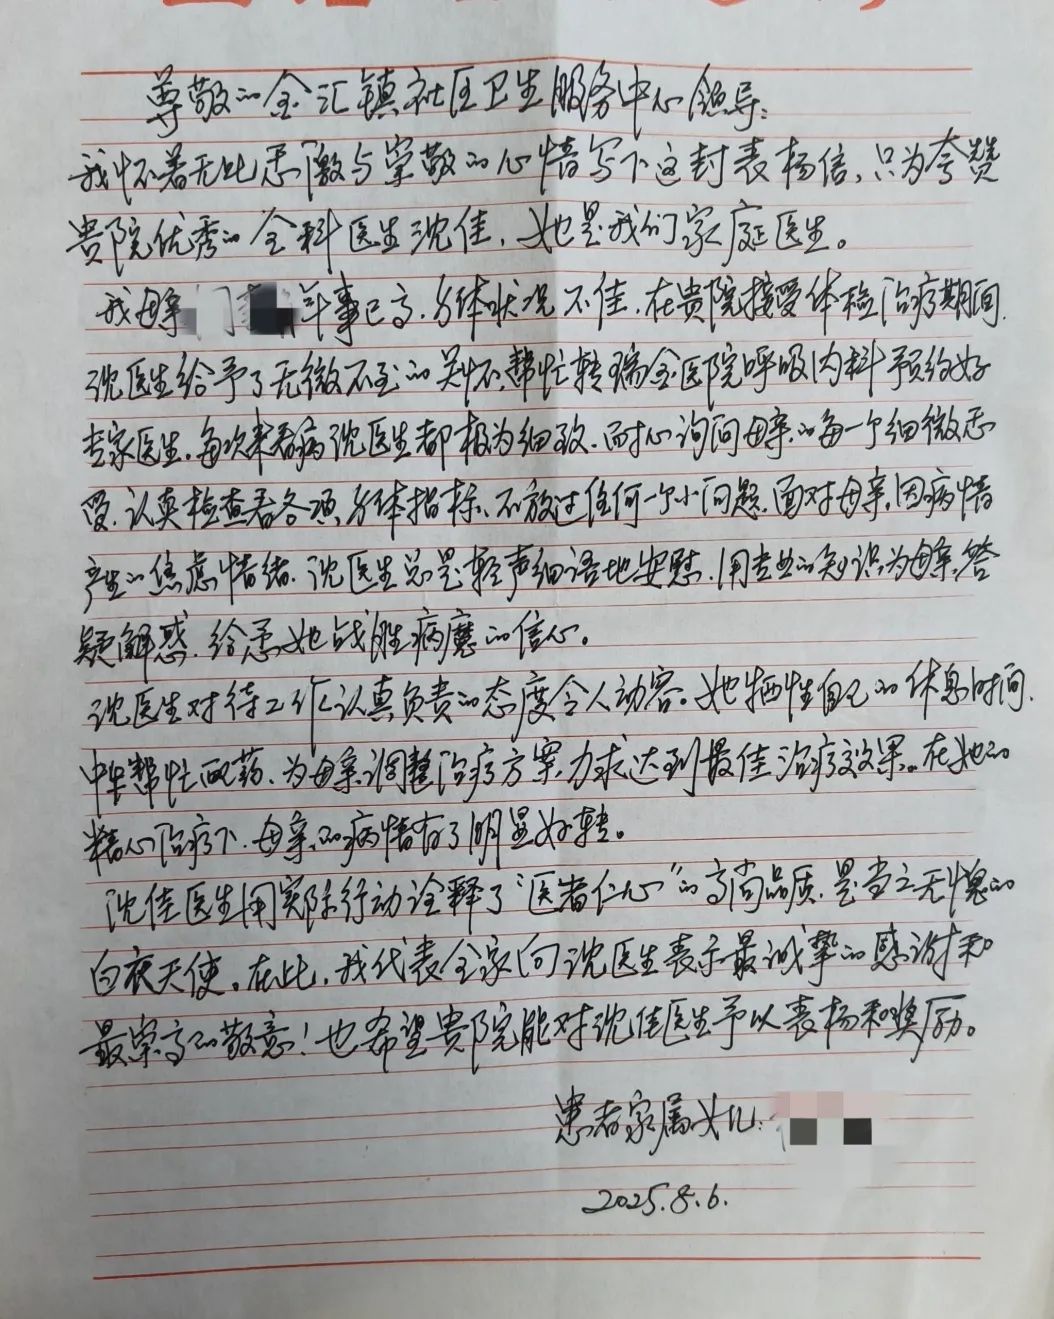 尊敬的金汇镇社区卫生服务中心领导：
我怀着无比感激与崇敬的心情写下这封表扬信，只为夸赞
贵院优秀的全科医生沈佳，她是我们家庭医生。
我母亲年事已高，身体状况不佳，在贵院接受体检治疗期间，
沈医生给予了无微不至的关怀，帮忙转瑞金医院呼吸内科预约好
专家医生，每次来看病沈医生都极为细致，耐心询问母亲的每一个细微感
受，认真检查看各项身体指标，不放过任何一个小问题，面对母亲因病情
产生的焦虑情绪，沈医生总是轻声细语地安慰，用专业的知识为母亲答
疑解惑，给予她战胜病魔的信心。
沈医生对待工作认真负责的态度令人动容。她牺牲自己的休息时间，
中午帮忙配药，为母亲调整治疗方案，力求达到最佳治疗效果。在她的
精心治疗下，母亲的病情有了明显好转。
沈佳医生用实际行动诠释了“医者仁心”的高尚品质，是当之无愧的
白衣天使。在此，我代表全家向沈医生表示最诚挚的感谢和
最崇高的敬意！也希望贵院能对沈佳医生予以表扬和奖励。
患者家属女儿：
2025.8.6.